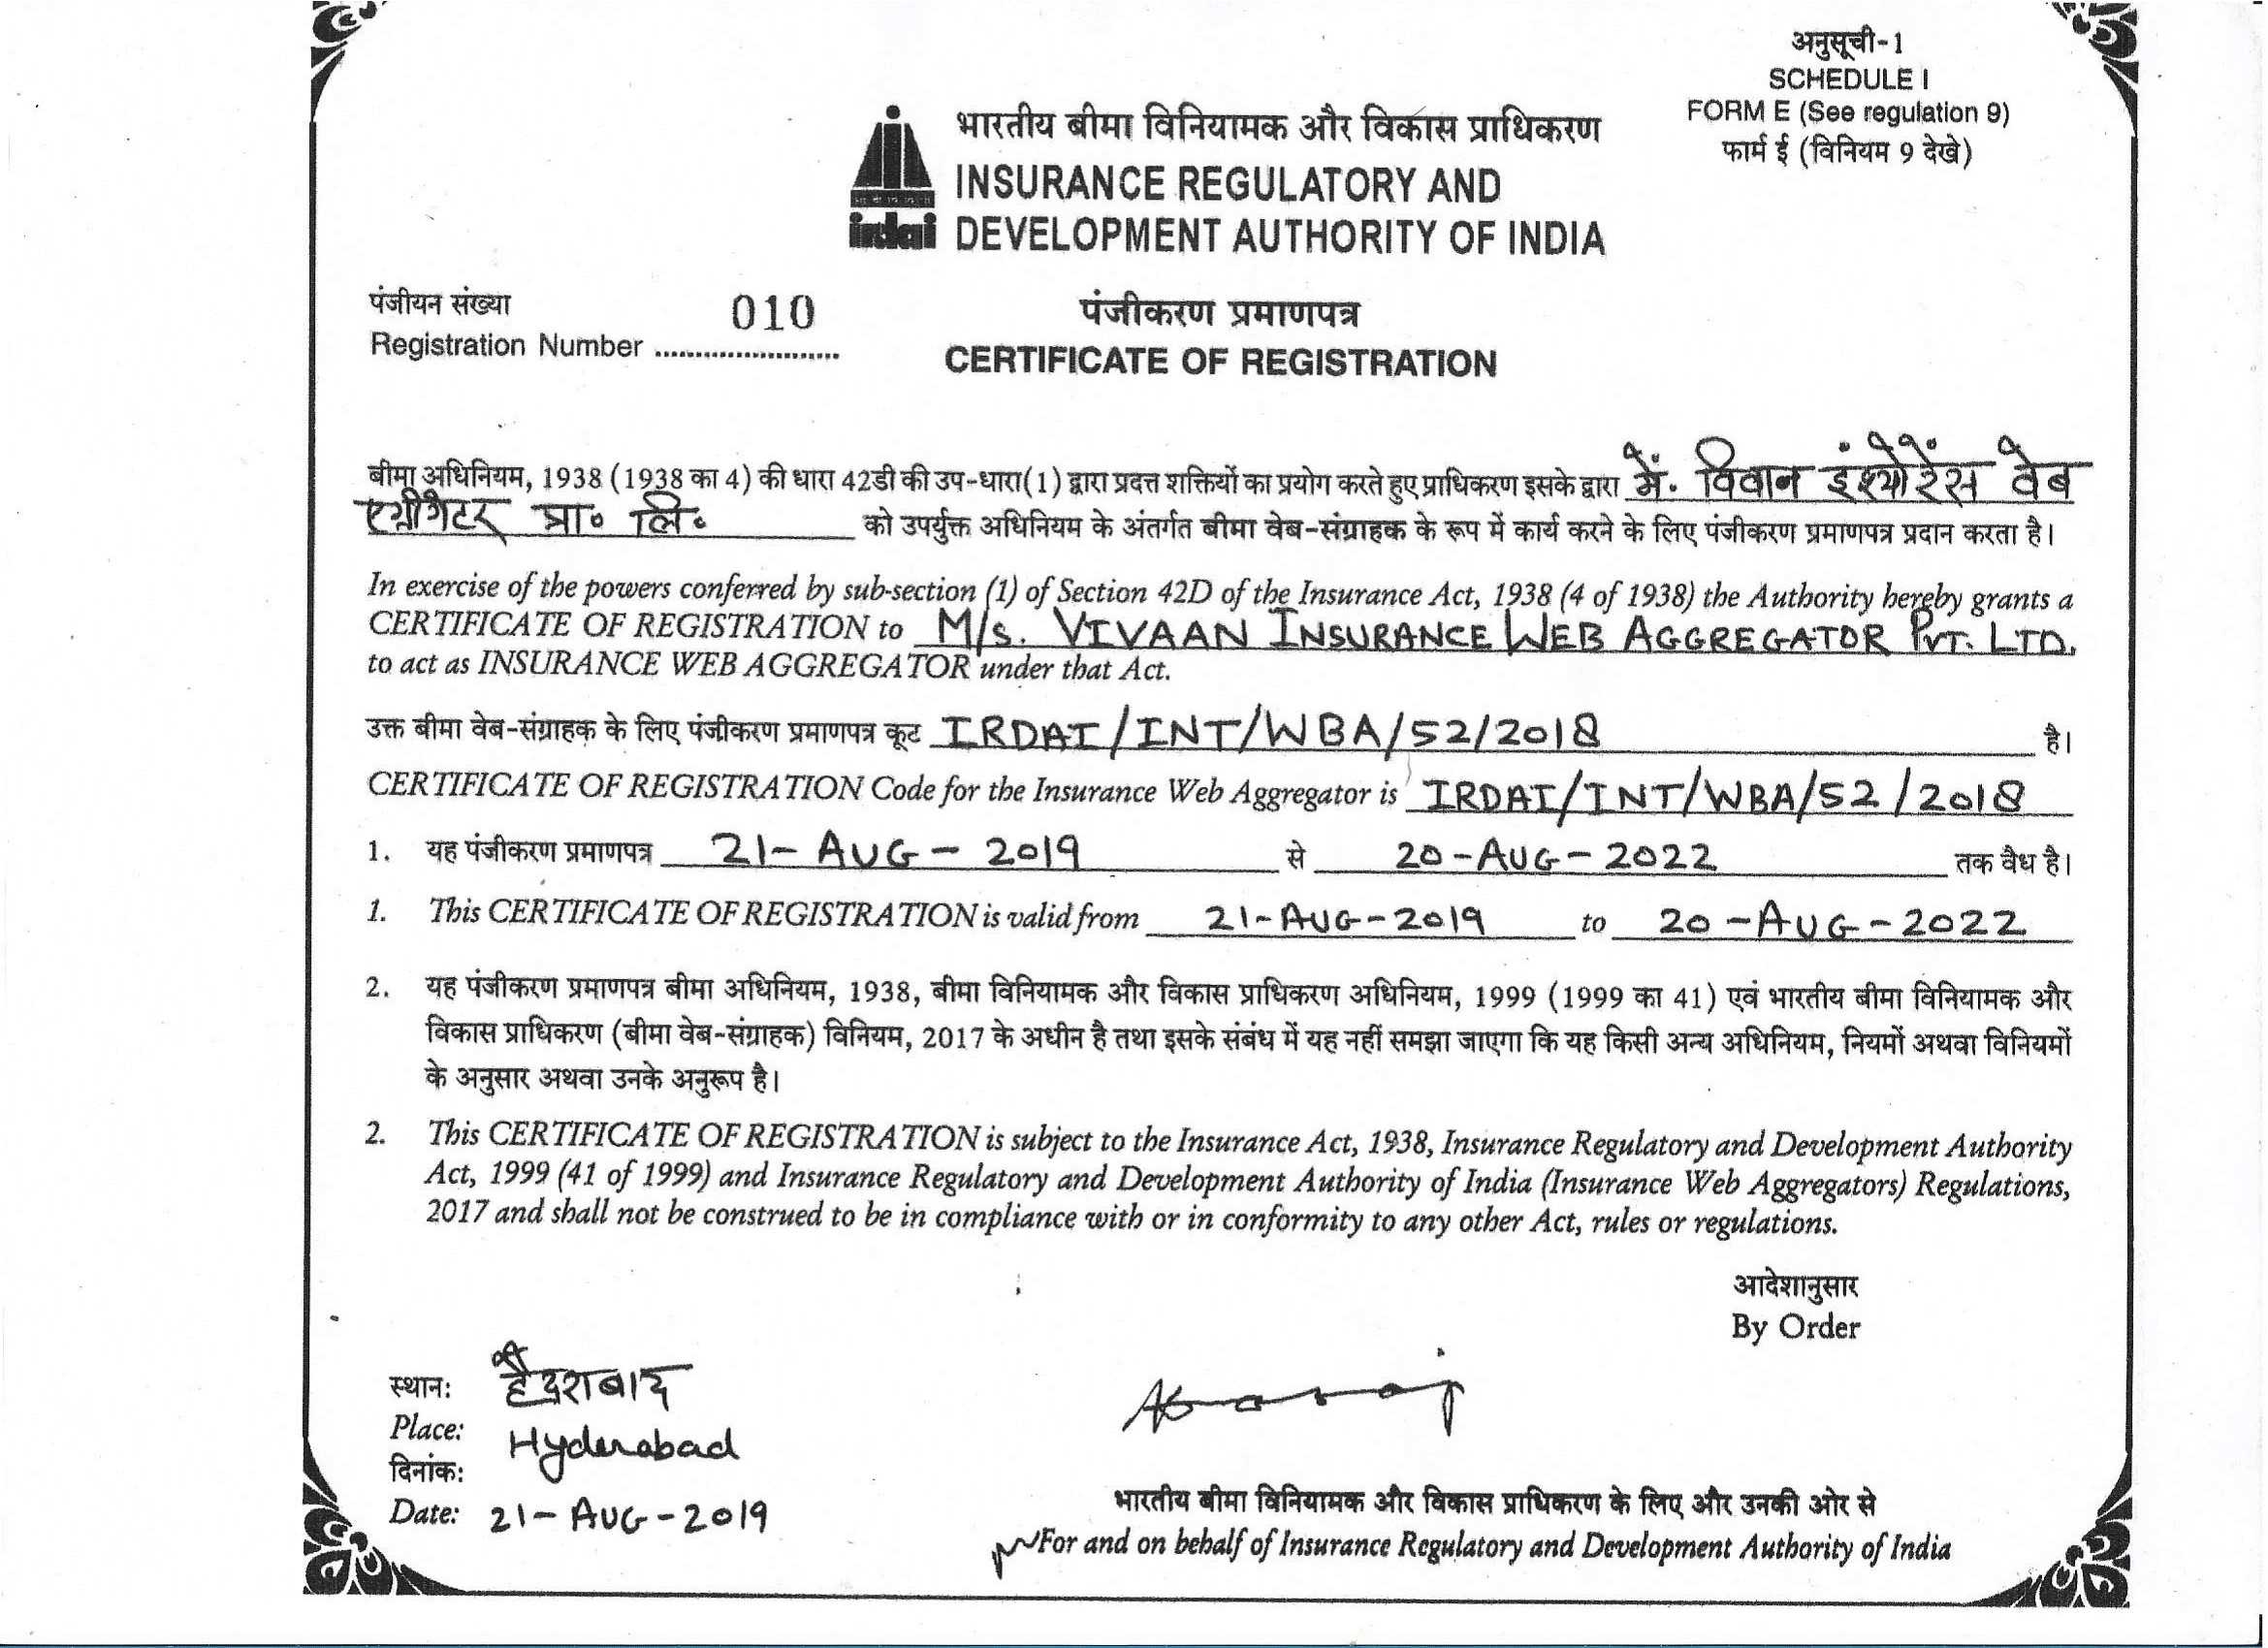 अनुसूची-1
SCHEDULE I
FORM E (See regulation 9)
फार्म ई (विनियम 9 देखे)
भारतीय बीमा विनियामक और विकास प्राधिकरण
INSURANCE REGULATORY AND
DEVELOPMENT AUTHORITY OF INDIA
irdai
पंजीयन संख्या
Registration Number 010
पंजीकरण प्रमाणपत्र
CERTIFICATE OF REGISTRATION
बीमा अधिनियम, 1938 (1938 का 4) की धारा 42डी की उप-धारा(1) द्वारा प्रदत्त शक्तियों का प्रयोग करते हुए प्राधिकरण इसके द्वारा मे. विवान इंश्योरेंस वेब
एग्रीगेटर प्रा० लि० को उपर्युक्त अधिनियम के अंतर्गत बीमा वेब-संग्राहक के रूप में कार्य करने के लिए पंजीकरण प्रमाणपत्र प्रदान करता है।
In exercise of the powers conferred by sub-section (1) of Section 42D of the Insurance Act, 1938 (4 of 1938) the Authority hereby grants a
CERTIFICATE OF REGISTRATION to M/s. VIVAAN INSURANCE WEB AGGREGATOR PVT. LTD.
to act as INSURANCE WEB AGGREGATOR under that Act.
उक्त बीमा वेब-संग्राहक के लिए पंजीकरण प्रमाणपत्र कूट IRDAI/INT/WBA/52/2018 है।
CERTIFICATE OF REGISTRATION Code for the Insurance Web Aggregator is IRDAI/INT/WBA/52/2018
1. यह पंजीकरण प्रमाणपत्र 21-AUG-2019 से 20-AUG-2022 तक वैध है।
1. This CERTIFICATE OF REGISTRATION is valid from 21-AUG-2019 to 20-AUG-2022
2. यह पंजीकरण प्रमाणपत्र बीमा अधिनियम, 1938, बीमा विनियामक और विकास प्राधिकरण अधिनियम, 1999 (1999 का 41) एवं भारतीय बीमा विनियामक और
विकास प्राधिकरण (बीमा वेब-संग्राहक) विनियम, 2017 के अधीन है तथा इसके संबंध में यह नहीं समझा जाएगा कि यह किसी अन्य अधिनियम, नियमों अथवा विनियमों
के अनुसार अथवा उनके अनुरूप है।
2. This CERTIFICATE OF REGISTRATION is subject to the Insurance Act, 1938, Insurance Regulatory and Development Authority
Act, 1999 (41 of 1999) and Insurance Regulatory and Development Authority of India (Insurance Web Aggregators) Regulations,
2017 and shall not be construed to be in compliance with or in conformity to any other Act, rules or regulations.
आदेशानुसार
By Order
स्थान: हैदराबाद
Place: Hyderabad
दिनांक:
Date: 21-AUG-2019
भारतीय बीमा विनियामक और विकास प्राधिकरण के लिए और उनकी ओर से
For and on behalf of Insurance Regulatory and Development Authority of India